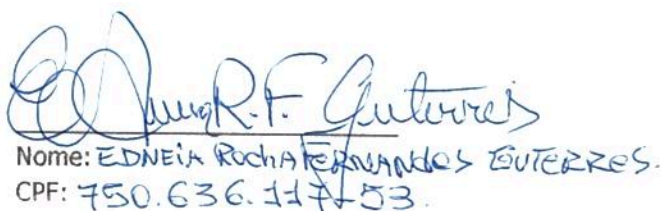 R.F. Guterres
Nome: EDNEIA ROCHA FERNANDES GUTERRES.
CPF: 750.636.117-53.